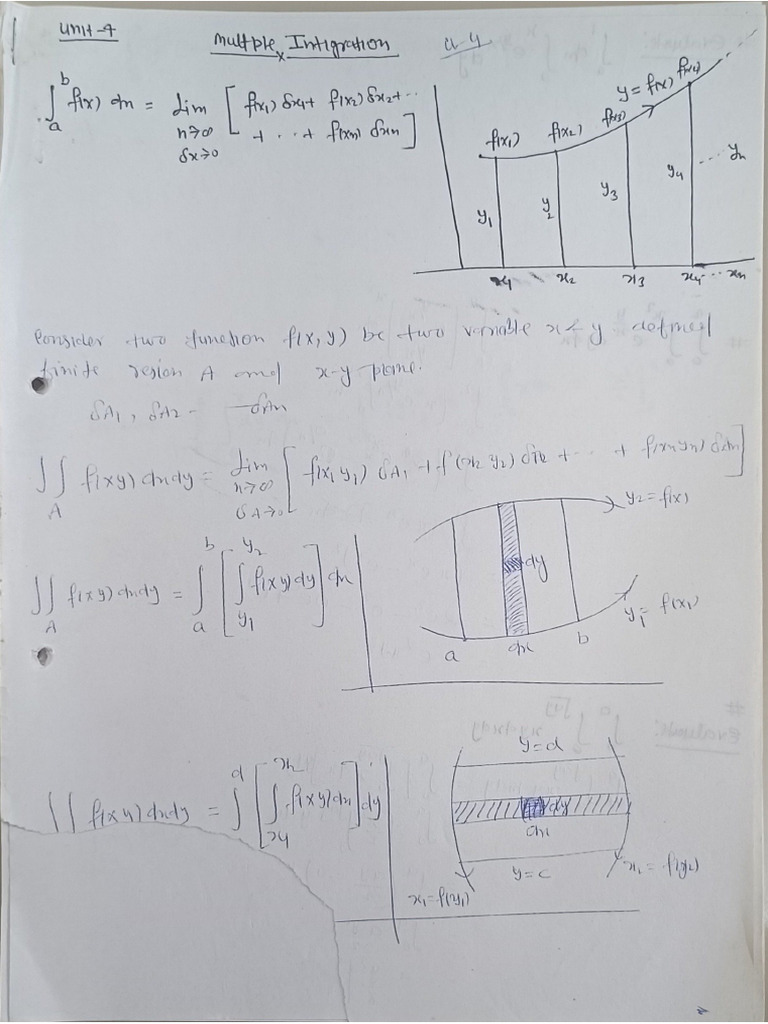 Unit-4
Multple Intigration
∫_a^b f(x) dx = Lim_{n→∞, δx→0} [ f(x₁) δx₁ + f(x₂) δx₂ + ..
+ ... + f(xn) δxn ]
y = f(x) f(x4)
f(x₁) f(x2) f(x3)
y₁ y₂ y₃ y₄ ... yn
x₁ x₂ x3 x4 ... xn
Consider two function f(x, y) be two variable x & y defined
finite region A and x-y plane.
δA₁, δA2 - - δAn
∬_A f(xy) dxdy = Lim_{n→∞, δA→0} [ f(x₁ y₁) δA₁ + f(x2 y2) + ... + f(xn yn) δAn ]
y₂ = f(x)
∬_A f(xy) dxdy = ∫_a^b [ ∫_{y₁}^{y₂} f(xy) dy ] dx
dy
y₁ = f(x₁)
a dx b
y = d
∬ f(xy) dxdy = ∫^d [ ∫_{x₁}^{x₂} f(xy) dx ] dy
dy
dx
y = c
x₁ = f(y₁) x₂ = f(y2)